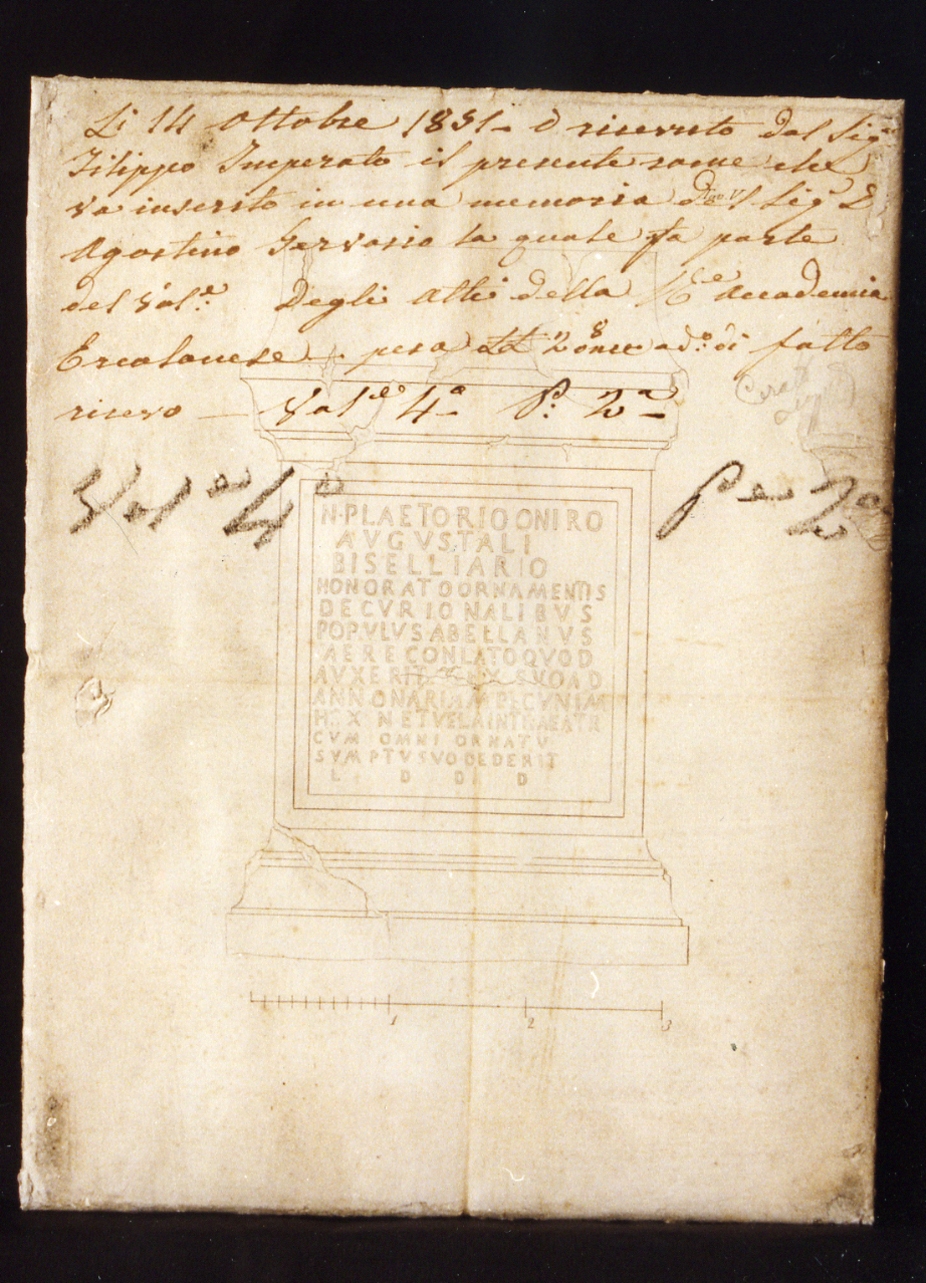 Li 14 Ottobre 1851 - ò ricevuto dal Sigr
Filippo Imperato il presente rame che
va inserito in una memoria del Sigr D
Agostino Gervasio la quale fa parte
del Vole. Degli Atti della Rle Accademia
Ercolanese pesa 2 once di fatto
ricevo — Vole 4o - P. 2a
Vole 4o Pe 2a
N·PLAETORIO ONIRO
AVGVSTALI
BISELLIARIO
HONORATO ORNAMENTIS
DECVRIONALIBVS
POPVLVS ABELLANVS
AERE CONLATO QVOD
AVXERIT EX SVO AD
ANNONARIAM PECVNIAM
HS X N ET VELA IN THEATR
CVM OMNI ORNATV
SVMPTV SVO DEDERIT
L D D D
1 2 3